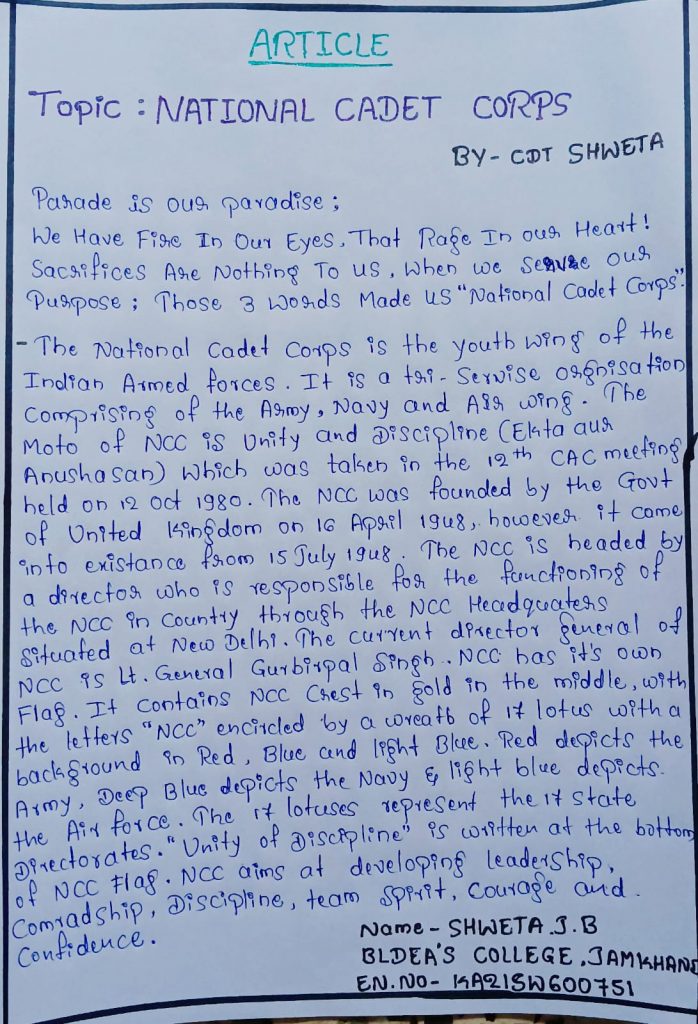 ARTICLE
Topic : NATIONAL CADET CORPS
BY- CDT SHWETA
Parade is our paradise ;
We Have Fire In Our Eyes, That Rage In our Heart!
Sacrifices Are Nothing To us, When we serve our
Purpose ; Those 3 Words Made us "National Cadet Corps".
- The National Cadet Corps is the youth wing of the
Indian Armed forces. It is a tri- Servise orgnisation
Comprising of the Army, Navy and Air wing. The
Moto of NCC is Unity and Discipline (Ekta aur
Anushasan) Which was taken in the 12th CAC meeting
held on 12 Oct 1980. The NCC was founded by the Govt
of United Kingdom on 16 April 1948, however it came
into existance from 15 July 1948. The NCC is headed by
a director who is responsible for the functioning of
the NCC in Country through the NCC Headquaters
Situated at New Delhi. The current director general of
NCC is Lt. General Gurbirpal Singh. NCC has it's own
Flag. It Contains NCC Crest in gold in the middle, with
the letters "NCC" encircled by a wreath of 17 lotus with a
background in Red, Blue and light Blue. Red depicts the
Army, Deep Blue depicts the Navy & light blue depicts.
the Air force. The 17 lotuses represent the 17 state
Directorates. "Unity of Discipline" is written at the bottom
of NCC Flag. NCC aims at developing leadership,
Comradship, Discipline, team spirit, Courage and.
Confidence.
Name - SHWETA.J.B
BLDEA'S COLLEGE, JAMKHAND
EN.NO- KA21SW600751